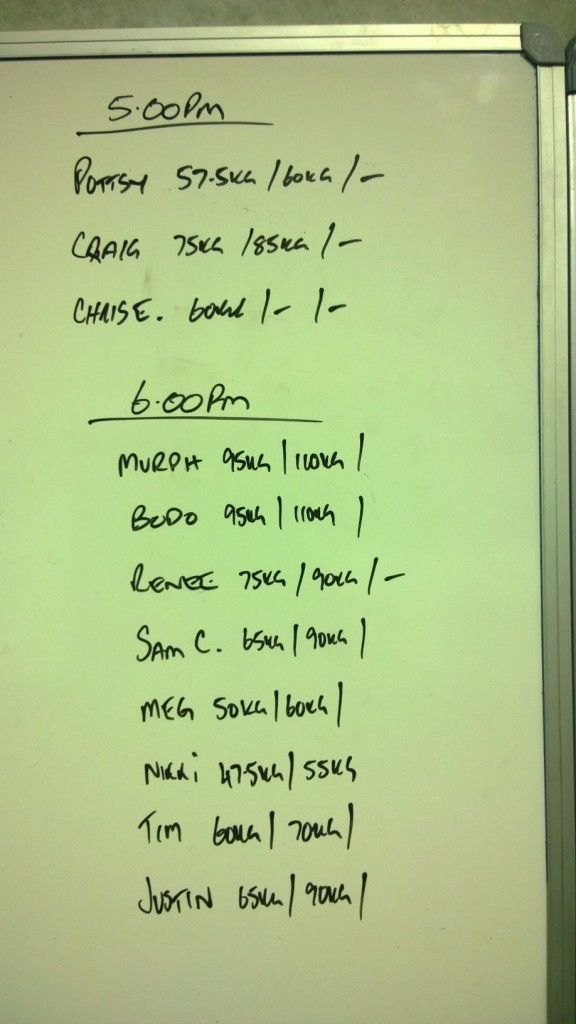 5.00PM
POTTSY 57.5KG /60KG /-
CRAIG 75KG /85KG /-
CHRIS E. 60KG /- /-
6.00PM
MURPH 95KG /110KG /
BODO 95KG /110KG /
RENEE 75KG /90KG /-
SAM C. 65KG /90KG /
MEG 50KG /60KG /
NIKKI 47.5KG / 55KG
TIM 60KG / 70KG /
JUSTIN 65KG / 90KG /